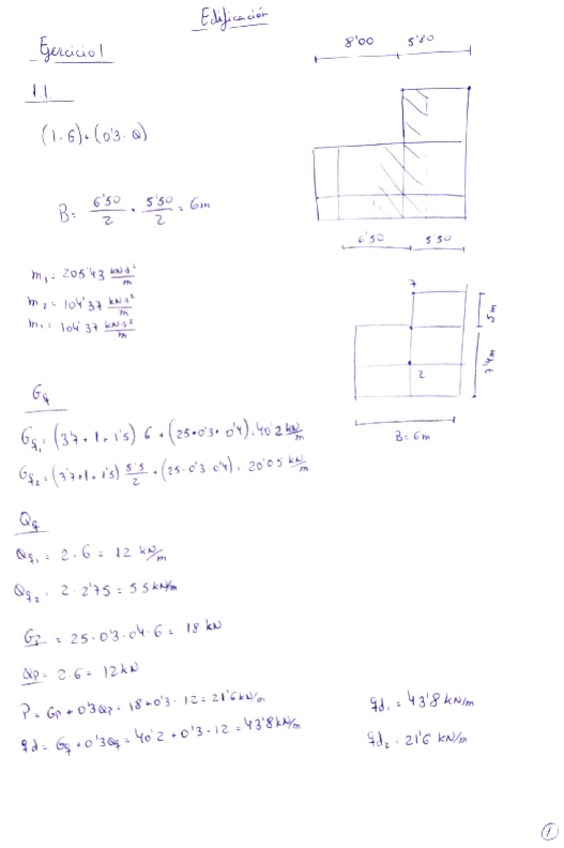 Edificación
Ejercicio 1
8'00 5'80
1.1
(1·G)+(0'3·Q)
B= 6'50/2 + 5'50/2 = 6m
6'50 5'50
m1 = 205'43 kN s²/m
m2 = 104'37 kN s²/m
m1 = 104'37 kN s²/m
7
5m
7'4m
2
B=6m
Gq
Gq1 = (3'7+1+1'5) 6 + (25·0'3·0'4) = 40'2 kN/m
Gq2 = (3'7+1+1'5) 5'5/2 + (25·0'3·0'4) = 20'05 kN/m
Qq
Qq1 = 2·6 = 12 kN/m
Qq2 = 2·2'75 = 5'5 kN/m
Gp = 25·0'3·0'4·6 = 18 kN
Qp = 2·6 = 12 kN
P = Gp + 0'3Qp = 18+0'3·12 = 21'6 kN/m
qd1 = 43'8 kN/m
qd = Gq + 0'3Qq = 40'2 + 0'3·12 = 43'8 kN/m
qd2 = 21'6 kN/m
1